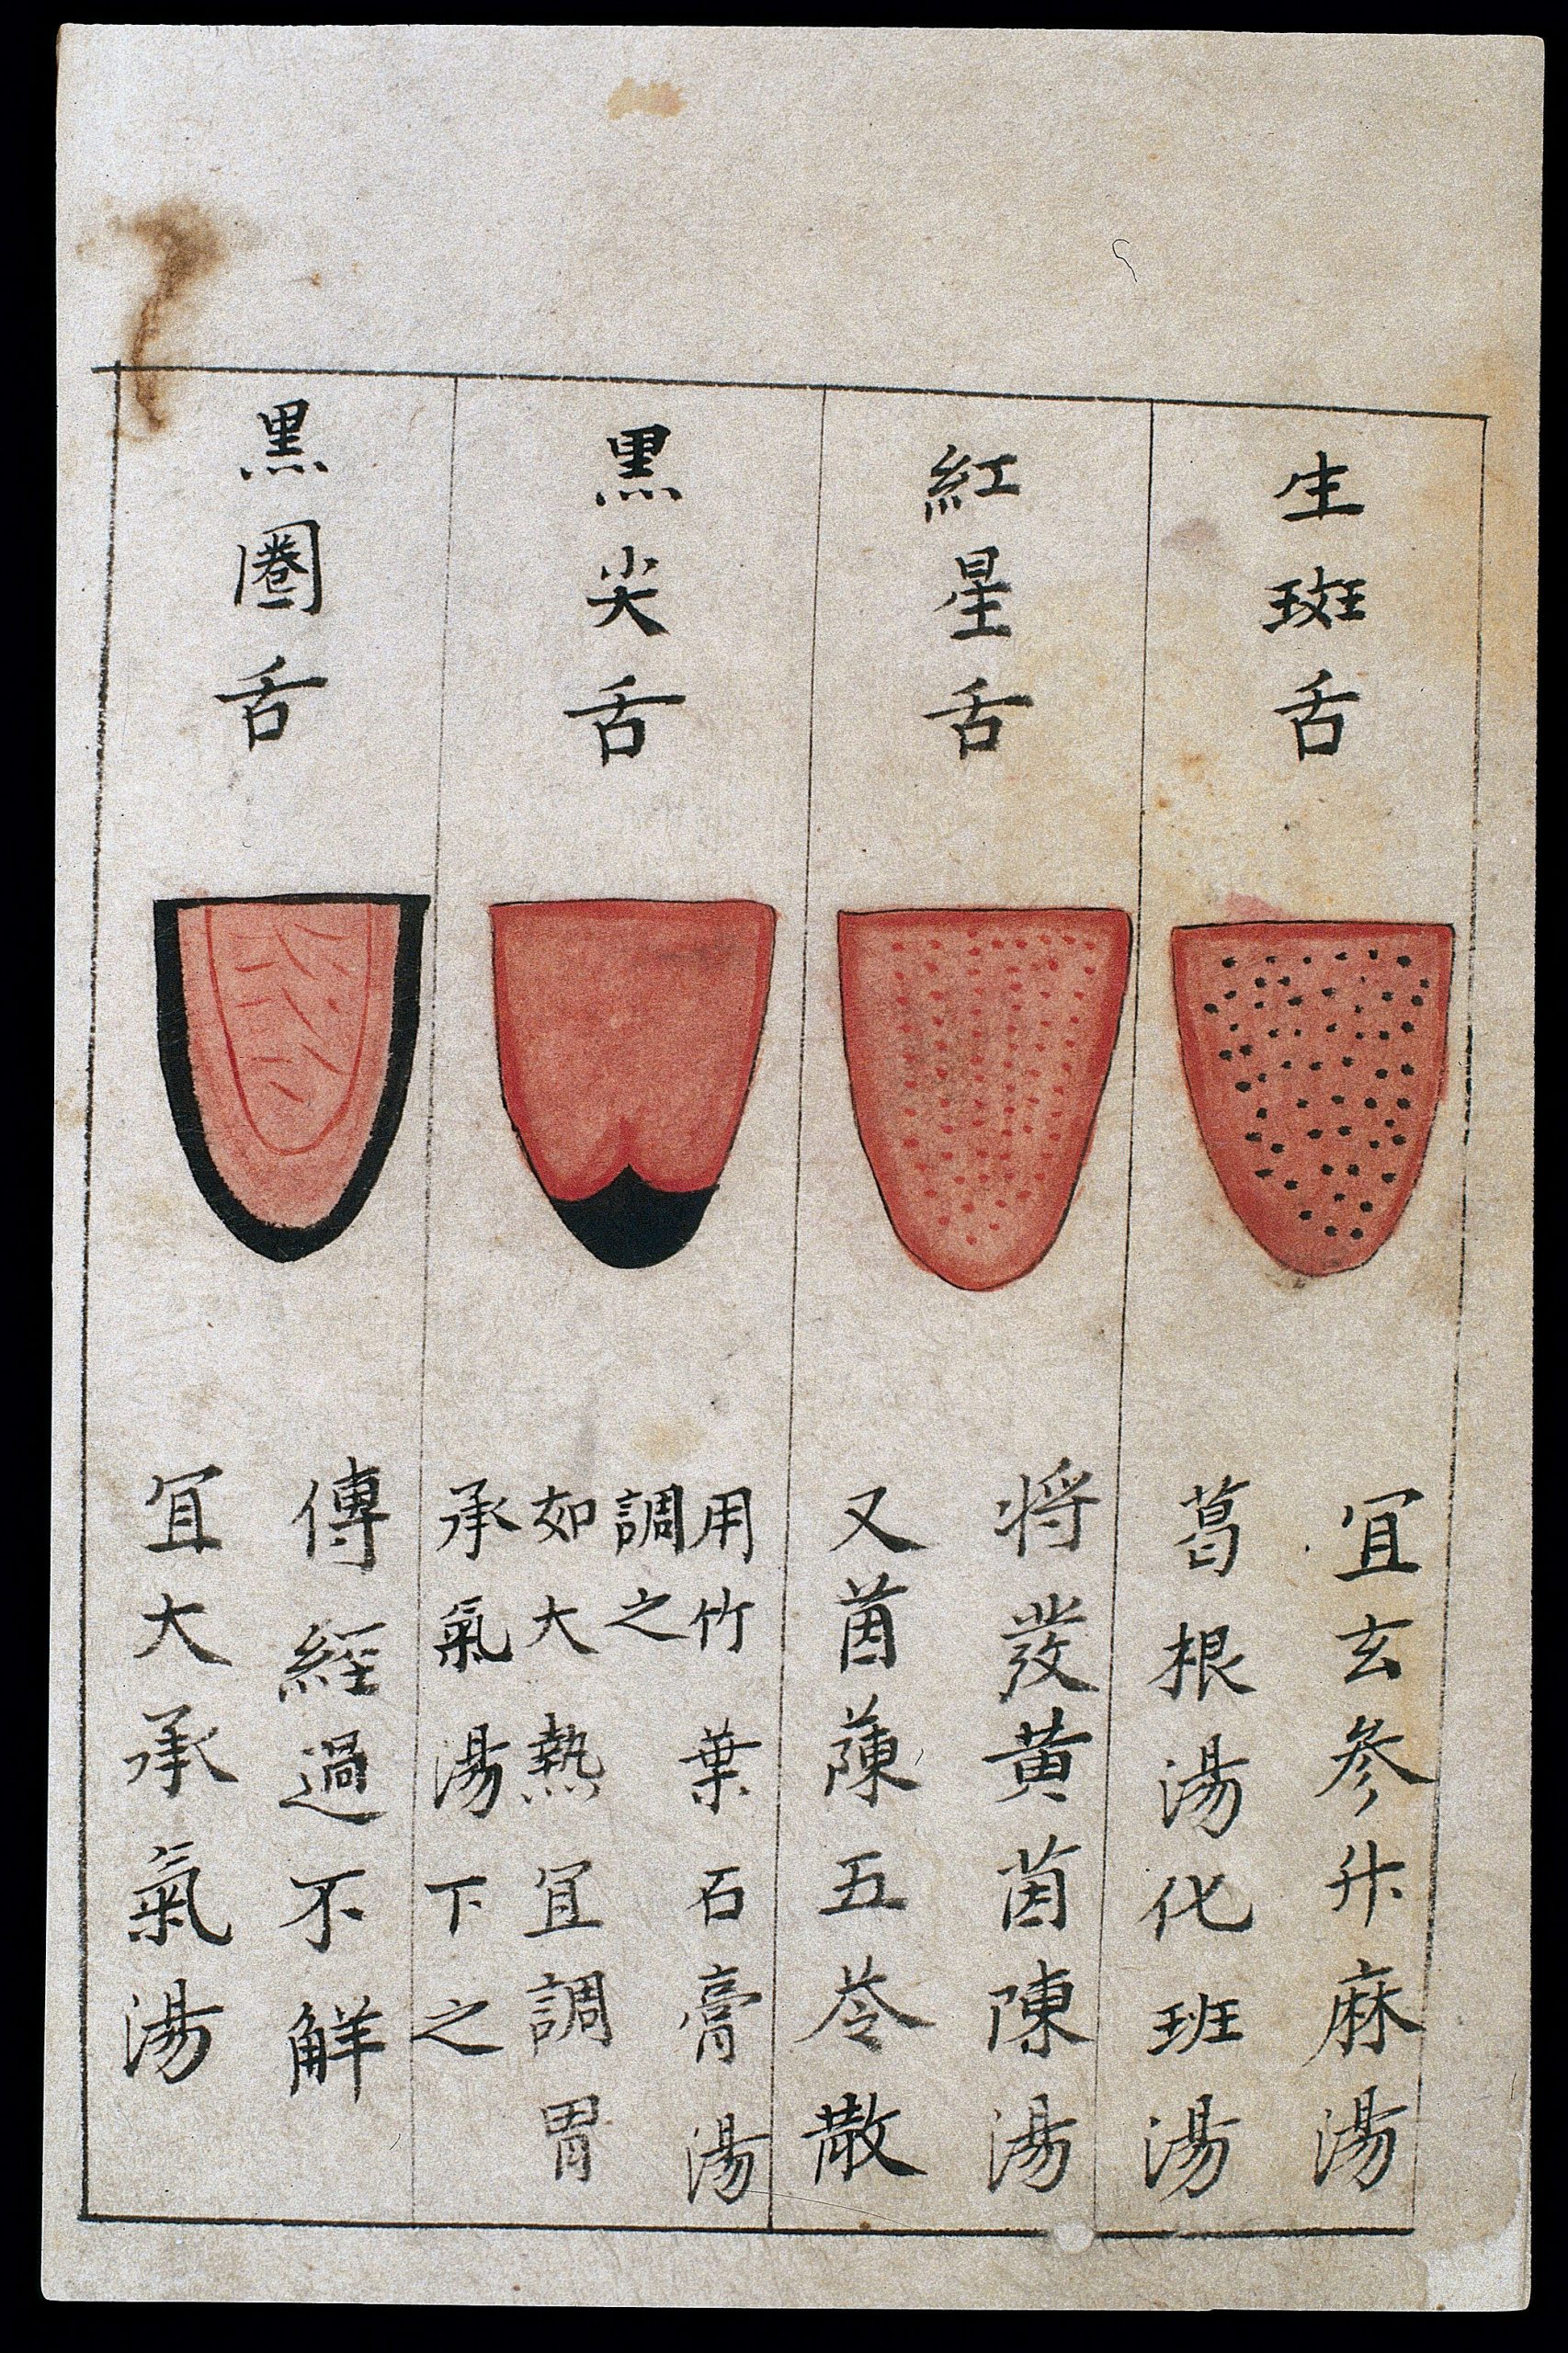 生斑舌
宜玄參升麻湯
葛根湯化班湯
紅星舌
将發黄茵陳湯
又茵蔯五苓散
黒尖舌
用竹葉石膏湯
調之
如大熱宜調胃
承氣湯下之
黒圏舌
傳經過不觧
宜大承氣湯